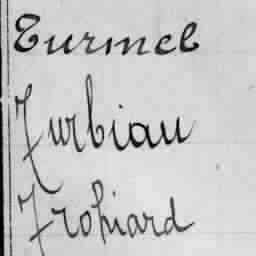 Turmel
Turbiau
Trohiard